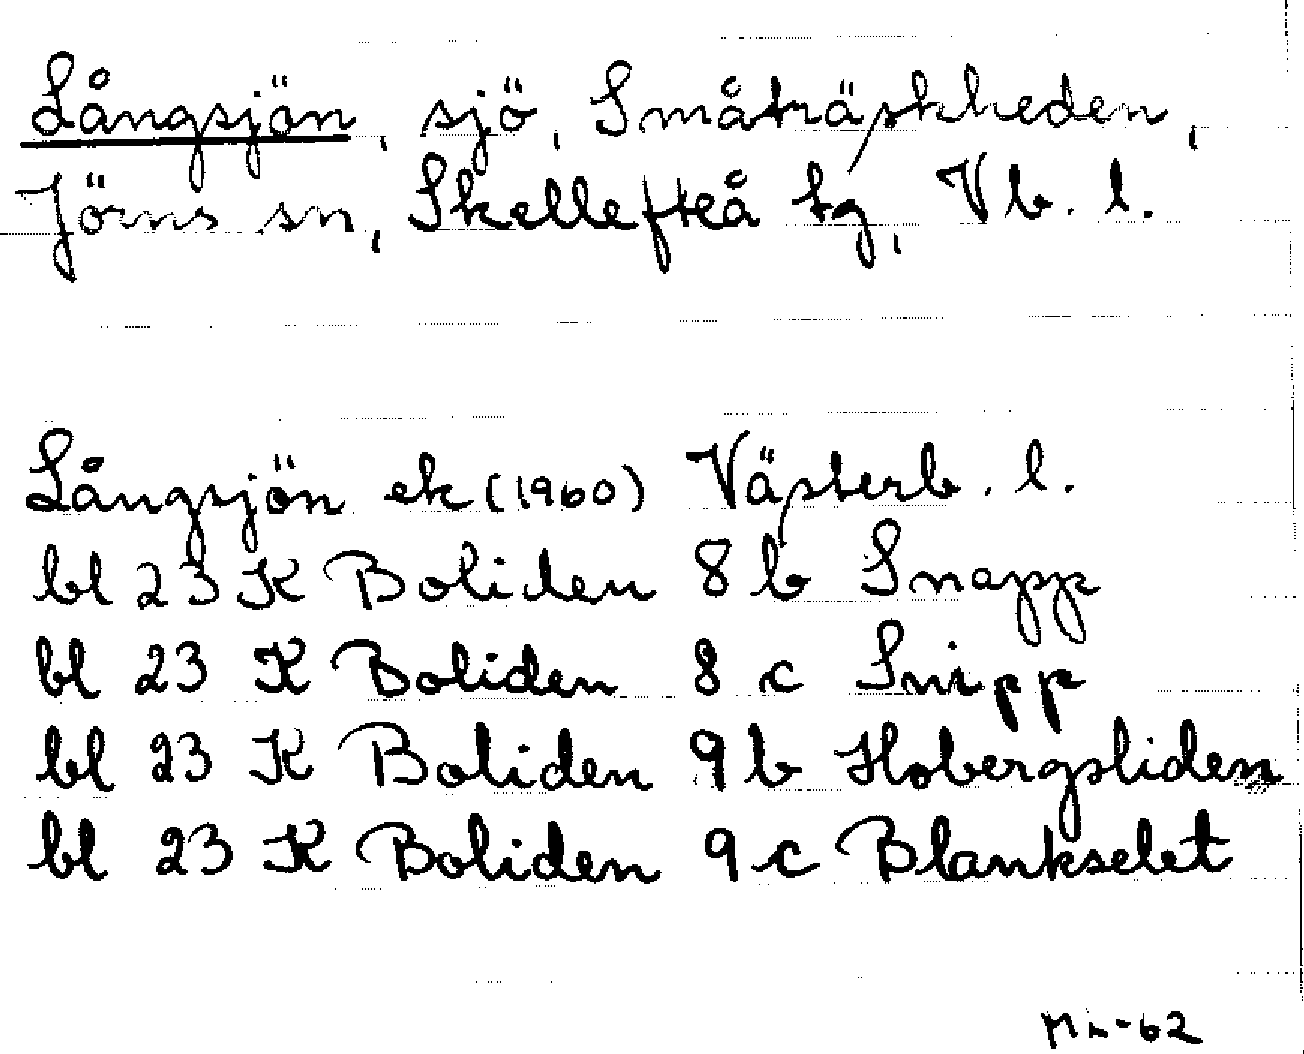 Långsjön, sjö, Småträskheden,
Jörns sn, Skellefteå tg, Vb. l.
Långsjön ek (1960) Västerb. l.
bl 23 K Boliden 8 b Snapp
bl 23 K Boliden 8 c Snipp
bl 23 K Boliden 9 b Hobergsliden
bl 23 K Boliden 9 c Blankselet
-62